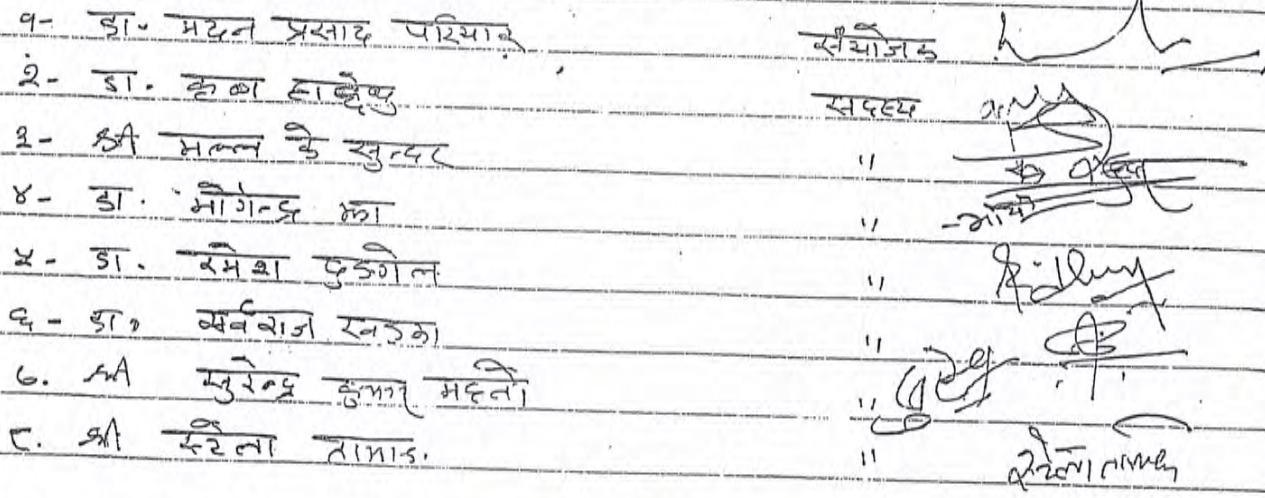 १- डा. मदन प्रसाद परियार संयोजक
२- डा. सदस्य
३- श्री मल्ल के सुन्दर "
४- डा. योगेन्द्र झा "
५- डा. रमेश ढुङ्गेल "
६- डा. सर्वराज खड्का "
७. श्री सुरेन्द्र कुमार महतो "
८. श्री स्टेला तामाङ. " स्टेला तामाङ